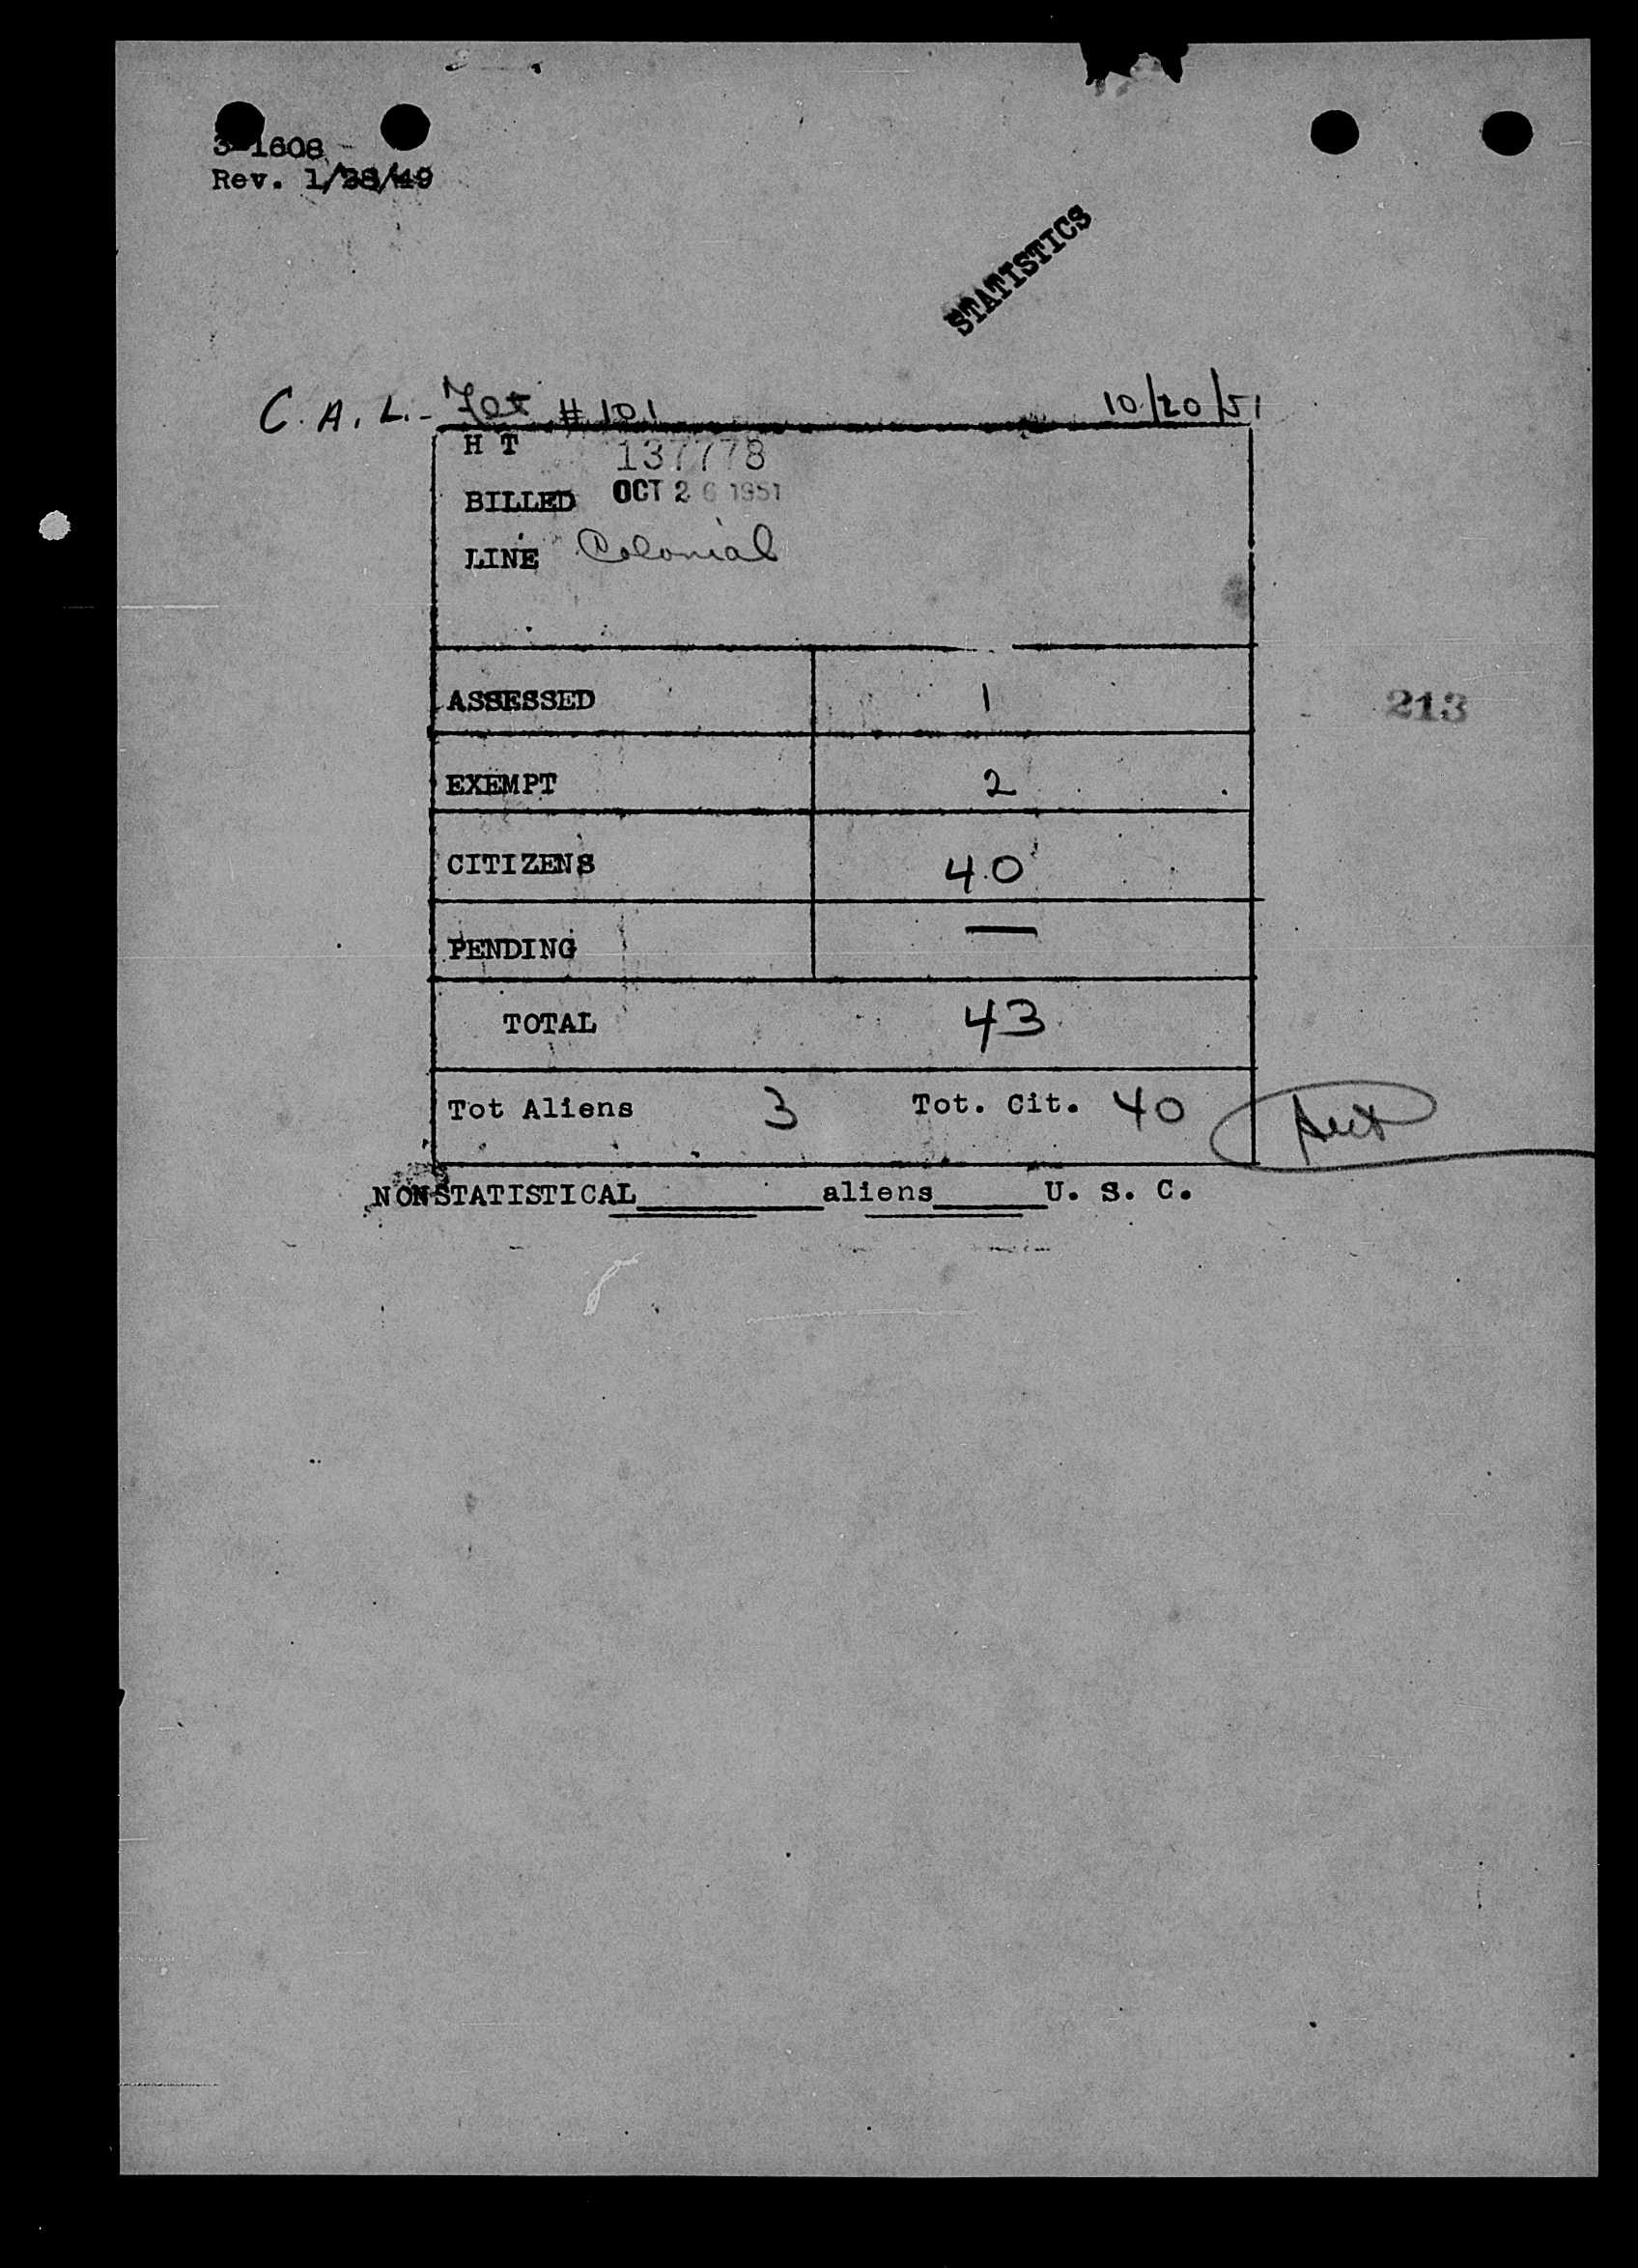 3-1608
Rev. 1/28/49
STATISTICS
C.A.L. - # 101 10/20/51
H T 137778
BILLED OCT 26 1951
LINE Colonial
ASSESSED 1
213
EXEMPT 2
CITIZENS 40
PENDING —
TOTAL 43
Tot Aliens 3 Tot. Cit. 40
NONSTATISTICAL________aliens_____U. S. C.